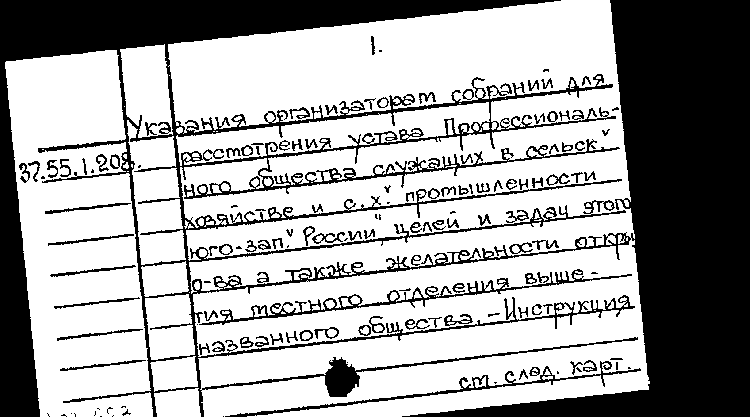 1.
Указания организаторам собраний для
37.55.1.208. рассмотрения устава „Профессиональ-
ного общества служащих в сельск."
хозяйстве и с.х." промышленности
юго-зап." России", целей и задач этого
о-ва, а также желательности откры
тия местного отделения выше-
названного общества. – Инструкция
см. след. карт.